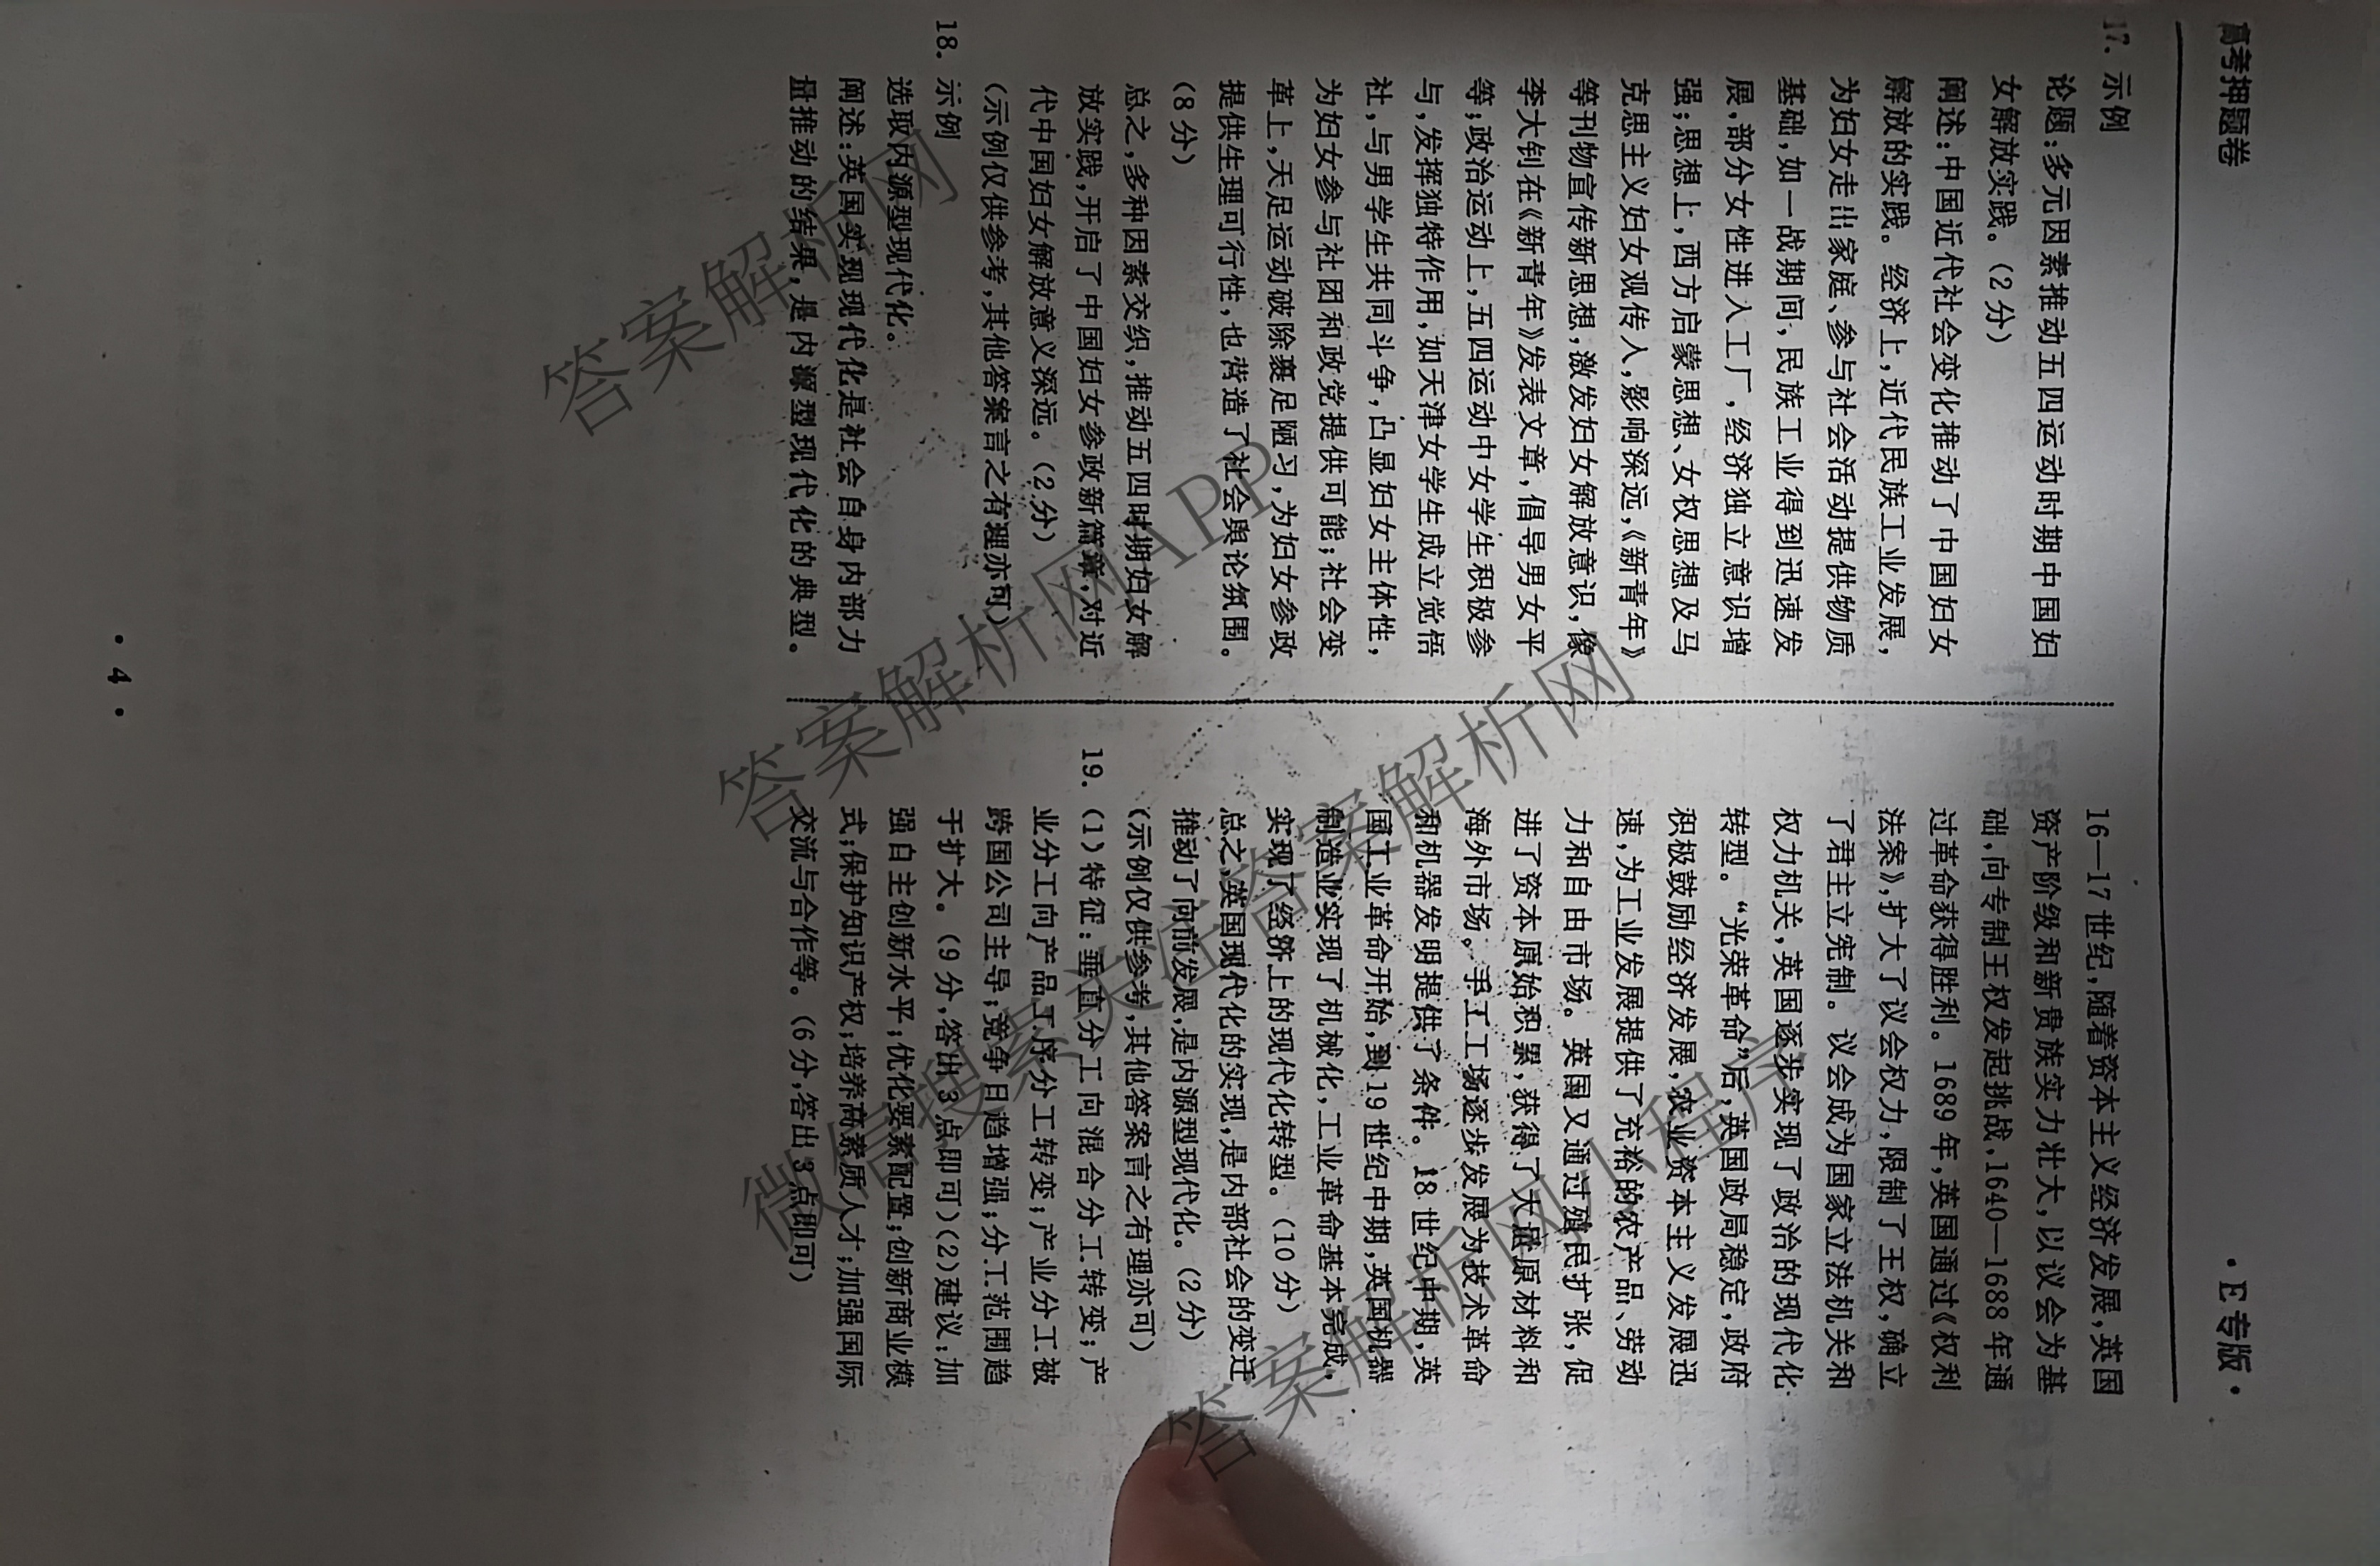 高考押题卷
·E专版·
17. 示例
论题:多元因素推动五四运动时期中国妇
女解放实践。(2分)
阐述:中国近代社会变化推动了中国妇女
解放的实践。经济上,近代民族工业发展,
为妇女走出家庭、参与社会活动提供物质
基础,如一战期间,民族工业得到迅速发
展,部分女性进入工厂,经济独立意识增
强;思想上,西方启蒙思想、女权思想及马
克思主义妇女观传入,影响深远,《新青年》
等刊物宣传新思想,激发妇女解放意识,像
李大钊在《新青年》发表文章,倡导男女平
等;政治运动上,五四运动中女学生积极参
与,发挥独特作用,如天津女学生成立觉悟
社,与男学生共同斗争,凸显妇女主体性,
为妇女参与社团和政党提供可能;社会变
革上,天足运动破除裹足陋习,为妇女参政
提供生理可行性,也营造了社会舆论氛围。
(8分)
总之,多种因素交织,推动五四时期妇女解
放实践,开启了中国妇女参政新篇章,对近
代中国妇女解放意义深远。(2分)
(示例仅供参考,其他答案言之有理亦可)
18. 示例
选取内源型现代化。
阐述:英国实现现代化是社会自身内部力
量推动的结果,是内源型现代化的典型。
16—17世纪,随着资本主义经济发展,英国
资产阶级和新贵族实力壮大,以议会为基
础,向专制王权发起挑战,1640—1688年通
过革命获得胜利。1689年,英国通过《权利
法案》,扩大了议会权力,限制了王权,确立
了君主立宪制。议会成为国家立法机关和
权力机关,英国逐步实现了政治的现代化
转型。“光荣革命”后,英国政局稳定,政府
积极鼓励经济发展,农业资本主义发展迅
速,为工业发展提供了充裕的农产品、劳动
力和自由市场。英国又通过殖民扩张,促
进了资本原始积累,获得了大量原材料和
海外市场。手工工场逐步发展为技术革命
和机器发明提供了条件。18世纪中期,英
国工业革命开始,到19世纪中期,英国机器
制造业实现了机械化,工业革命基本完成,
实现了经济上的现代化转型。(10分)
总之,英国现代化的实现,是内部社会的变迁
推动了向前发展,是内源型现代化。(2分)
(示例仅供参考,其他答案言之有理亦可)
19. (1)特征:垂直分工向混合分工转变;产
业分工向产品工序分工转变;产业分工被
跨国公司主导;竞争日趋增强;分工范围趋
于扩大。(9分,答出3点即可)(2)建议:加
强自主创新水平;优化要素配置;创新商业模
式;保护知识产权;培养高素质人才;加强国际
交流与合作等。(6分,答出3点即可)
· 4 ·
答案解析网
答案解析网APP
微信搜索关注答案解析网
答案解析网小程序